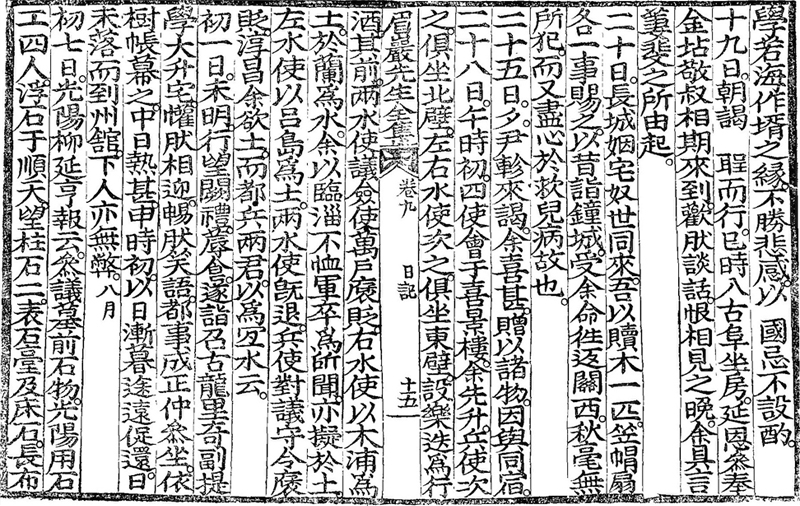 學若海作壻之緣不勝悲感以 國忌不設酌
十九日朝謁 聖而行巳時入古阜坐房延恩參奉
金坫敬叔相期來到歡然談話恨相見之晚余具言
萋斐之所由起
二十日長城姻宅奴世同來吾以贖木一匹笠帽扇
各一事賜之以昔詣鐘城受余命徃返關西秋毫無
所犯而又盡心於救兒病故也
二十五日夕尹軫來謁余喜甚贈以諸物因與同宿
二十八日午時初四使會于喜景樓余先升兵使次
之俱坐北壁左右水使次之俱坐東壁設樂迭爲行
眉巖先生全集 卷九 日記 十五
酒其前兩水使議僉使萬戶褒貶右水使以木浦爲
土於蘭爲水余以臨淄不恤軍卒爲所聞亦擬於土
左水使以呂島爲土兩水使旣退兵使對議守令褒
貶淳昌余欲土而都兵兩君以爲宜水云
初一日未明行望闕禮蓐食遂詣召古龍里奇副提
學大升宅懽然相迎暢然笑語都事成正仲參坐依
樹帳幕之中日熱甚申時初以日漸暮途遠促還日
未落而到州舘下人亦無弊八月
初七日光陽柳延亨報云參議墓前石物光陽用石
工四人浮石于順天望柱石二表石臺及床石長布